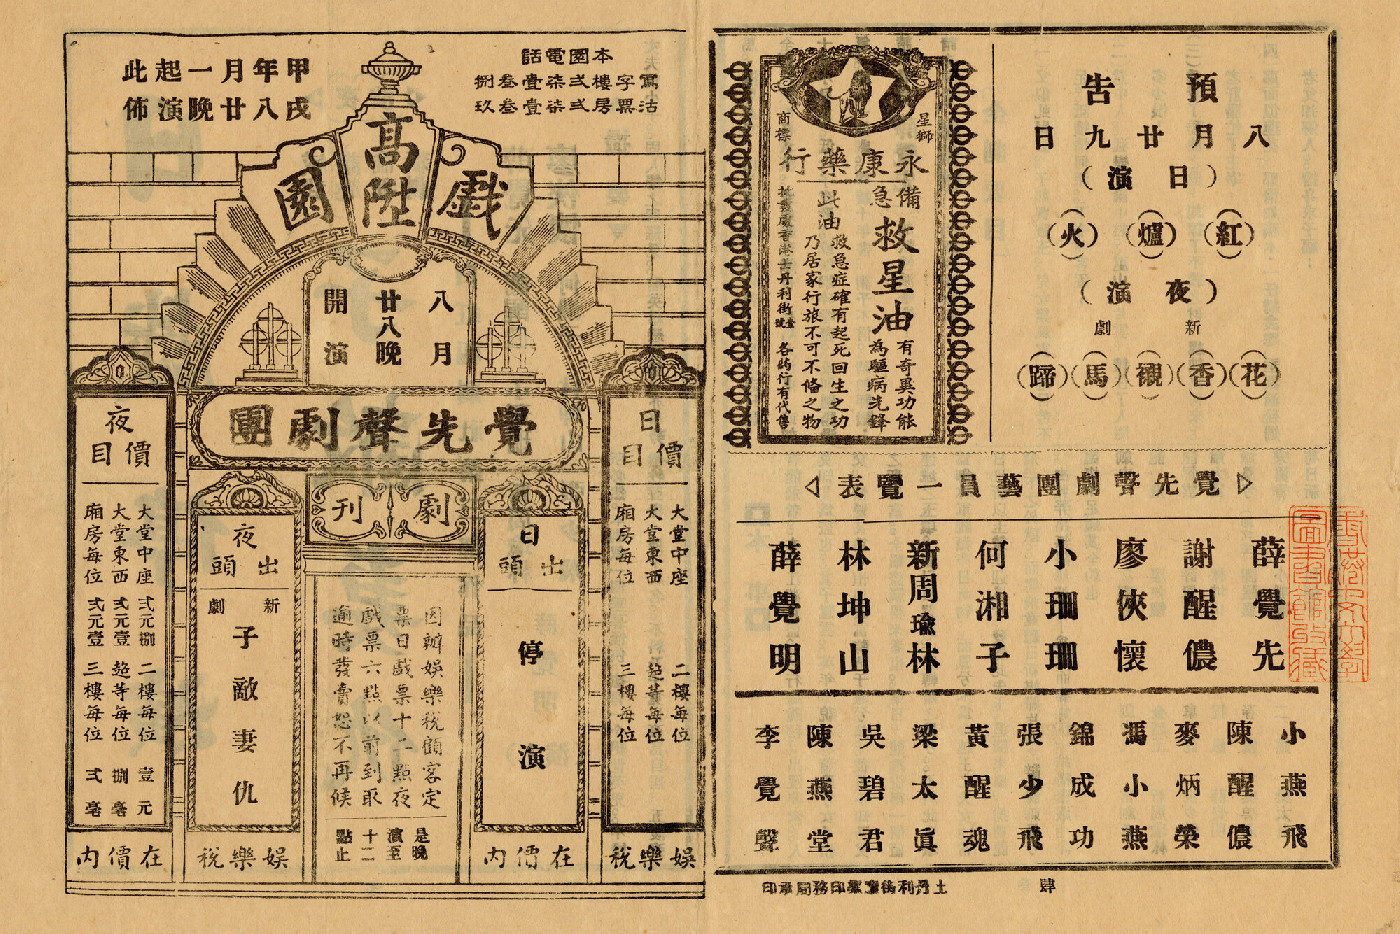 預告
八月廿九日
(日演)
(紅)(爐)(火)
(夜演)
新劇
(花)(香)(襯)(馬)(蹄)
星獅
商標
永康藥行
備急
救星油
有奇異功能
為驅病先鋒
此油
救急症確有起死回生之功
乃居家行旅不可不備之物
各葯行有代售
覺先聲劇團藝員一覽表
薛覺先
謝醒儂
廖俠懷
小珊珊
何湘子
新周瑜林
林坤山
薛覺明
小燕飛
陳醒儂
麥炳榮
馮小燕
錦成功
張少飛
黃醒魂
梁太眞
吳碧君
陳燕堂
李覺聲
肆
本園電話
寫字樓弍柒壹叁捌
沽票房弍柒壹叁玖
甲戌年八月廿一晚起演此佈
高陞戲園
八月廿八晚開演
覺先聲劇團
劇刊
日價目
大堂中座
大堂東西
廂房每位
二樓每位
超等每位
三樓每位
娛樂稅
日出頭
停演
在價內
園辦娛樂稅顧客定
票日戲票十二點夜
戲票六點以前到取
逾時發賣恕不再候
是晚演至十二點止
夜出頭
新劇
子敵妻仇
娛樂稅
夜價目
大堂中座 弍元捌
大堂東西 弍元壹
廂房每位 弍元壹
二樓每位 壹元
超等每位 捌毫
三樓每位 弍毫
在價內